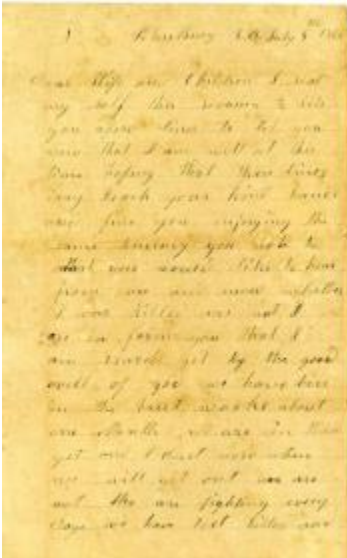 Petersburg V.A. July 8th
Dear Wife and Children I seat
my self this evening to rite
you a few lines to let you
now that I am well at this
time hoping that these lines
may reach your kind hands
and find you enjoying the
same you rote to
that you would like to hear
from me and now whether
I was killed or not I
can in form you that I
am spared yet by the good
will of god we have been
in the brest works about
one month we are in them
yet and I dont now when
we will get out we are
out the are fighting every
days we have lost kiled and